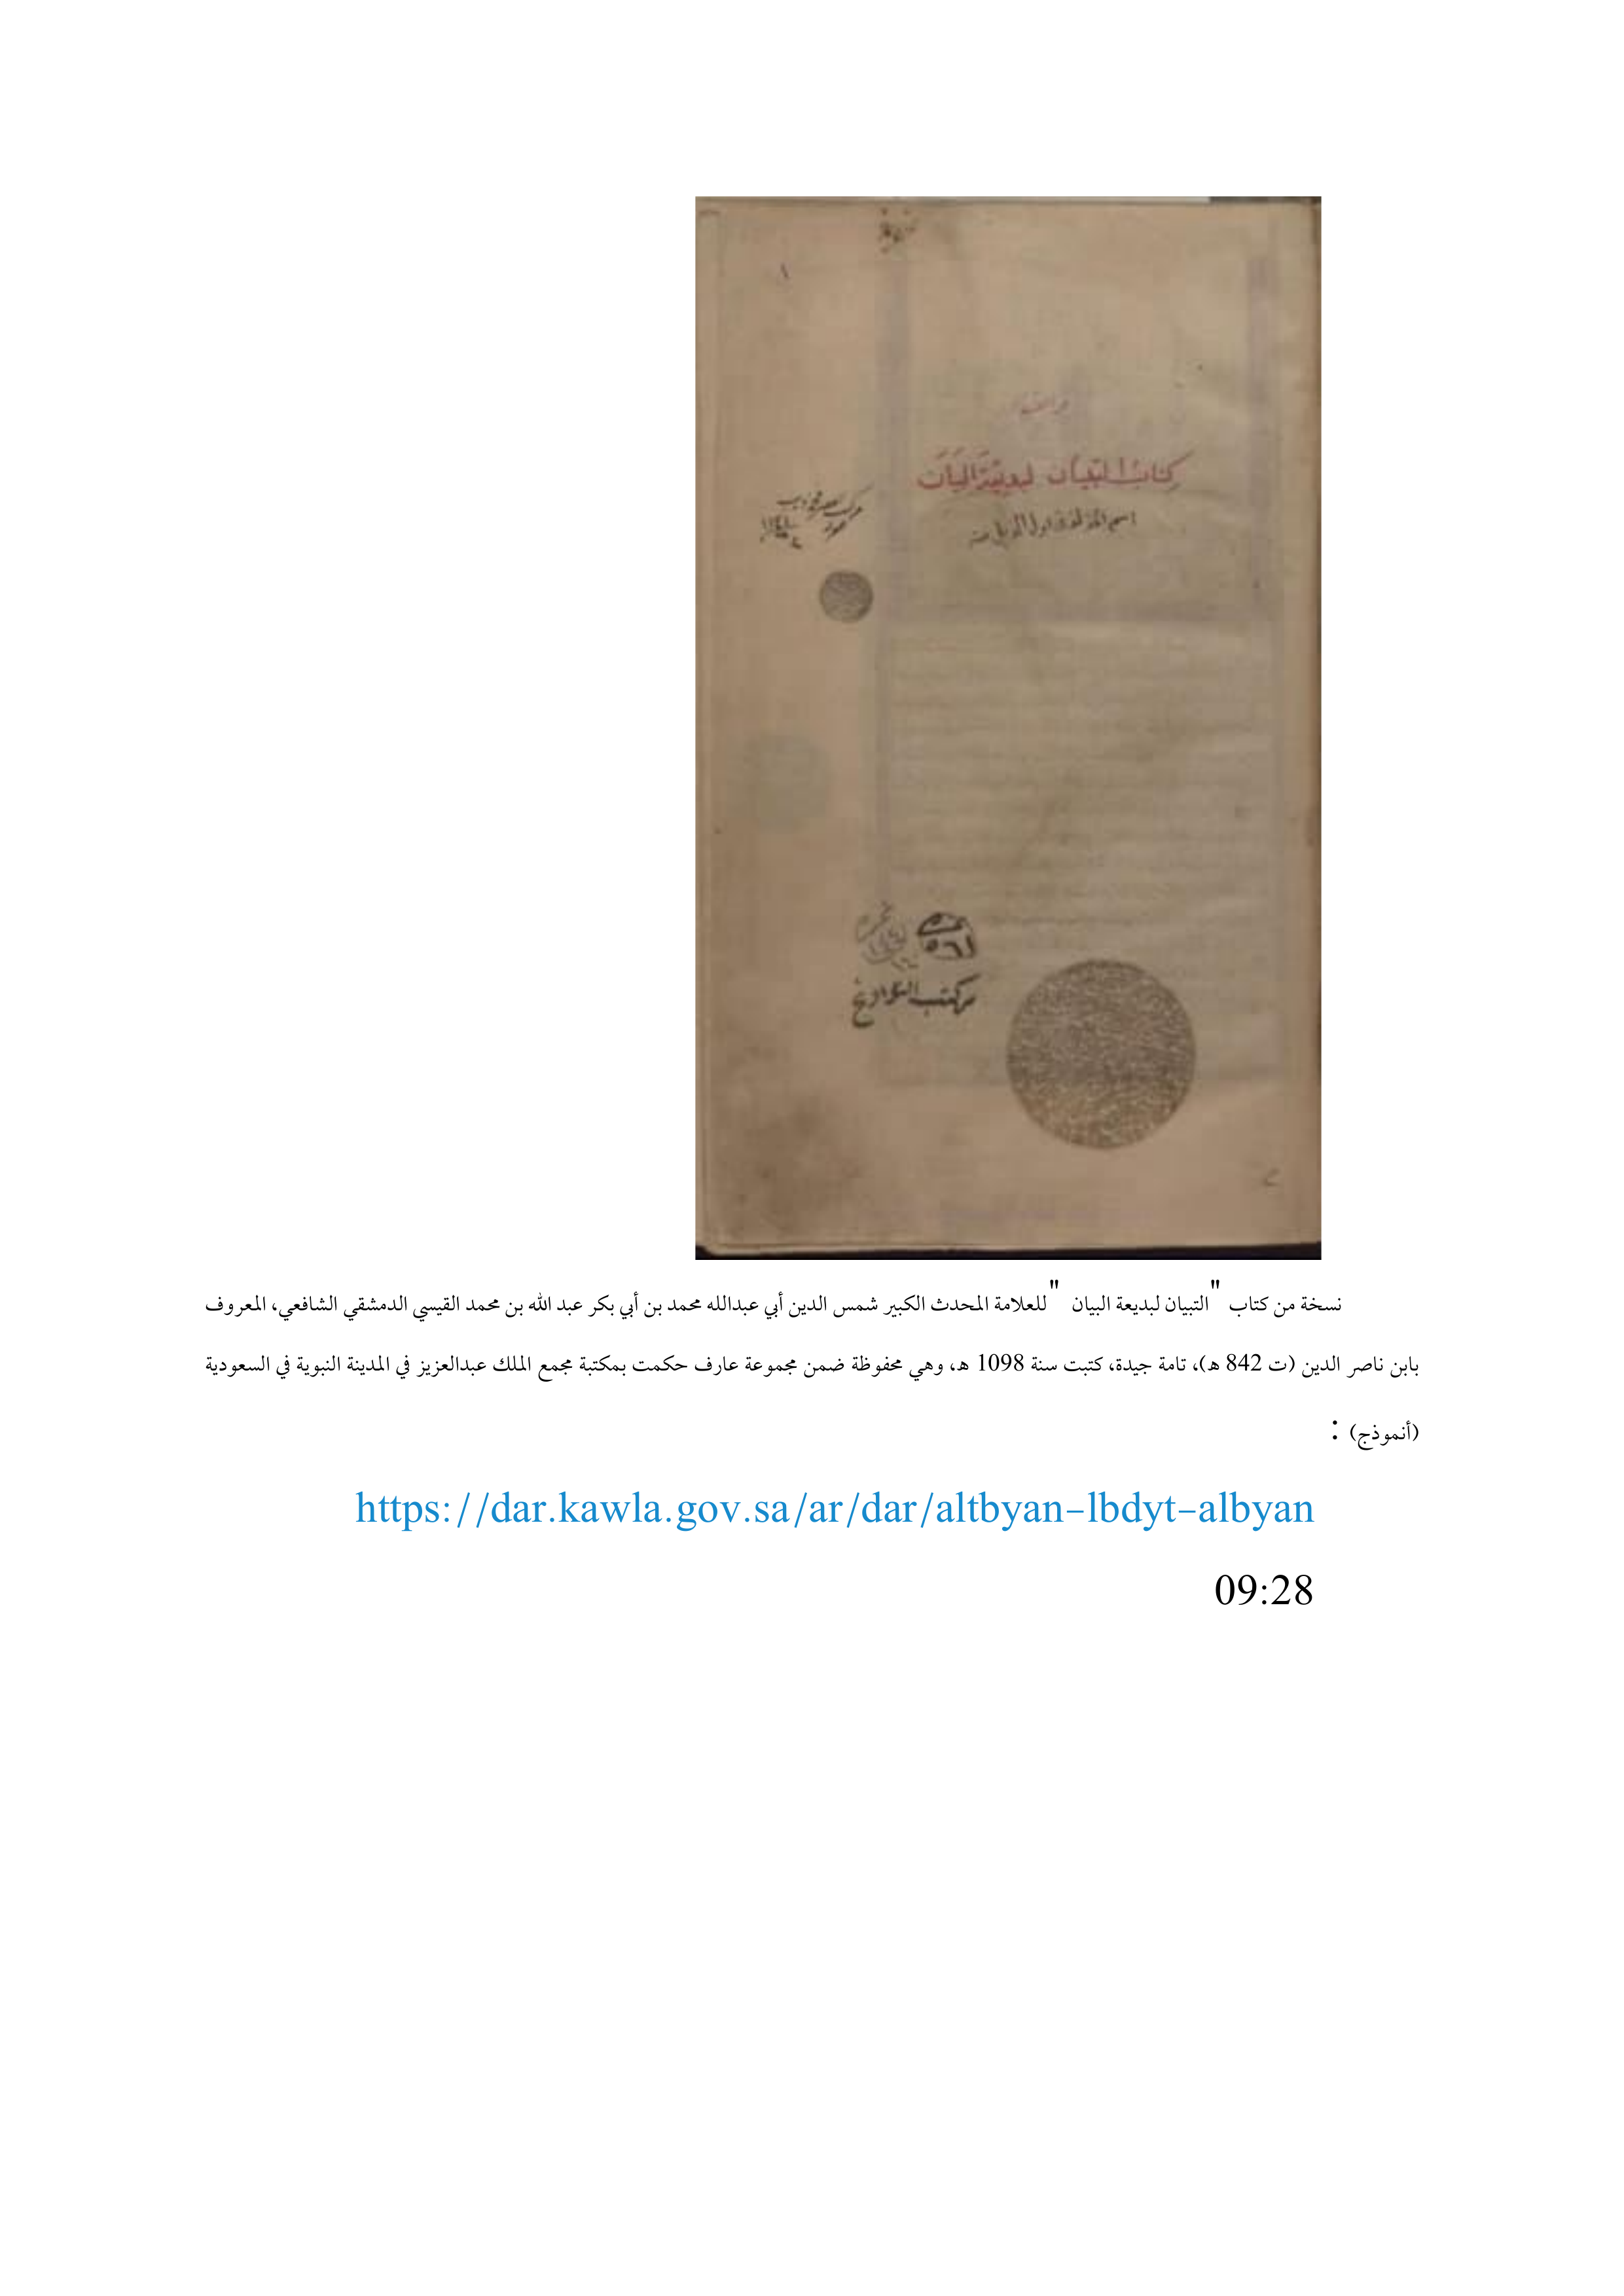 ١
كتاب التبيان لبديعة البيان
٥٦١
من كتب التواريخ
نسخة من كتاب "التبيان لبديعة البيان " للعلامة المحدث الكبير شمس الدين أبي عبدالله محمد بن أبي بكر عبد الله بن محمد القيسي الدمشقي الشافعي، المعروف
بابن ناصر الدين (ت 842 ه)، تامة جيدة، كتبت سنة 1098 ه، وهي محفوظة ضمن مجموعة عارف حكمت بمكتبة مجمع الملك عبدالعزيز في المدينة النبوية في السعودية
(أنموذج) :
https://dar.kawla.gov.sa/ar/dar/altbyan-lbdyt-albyan
09:28